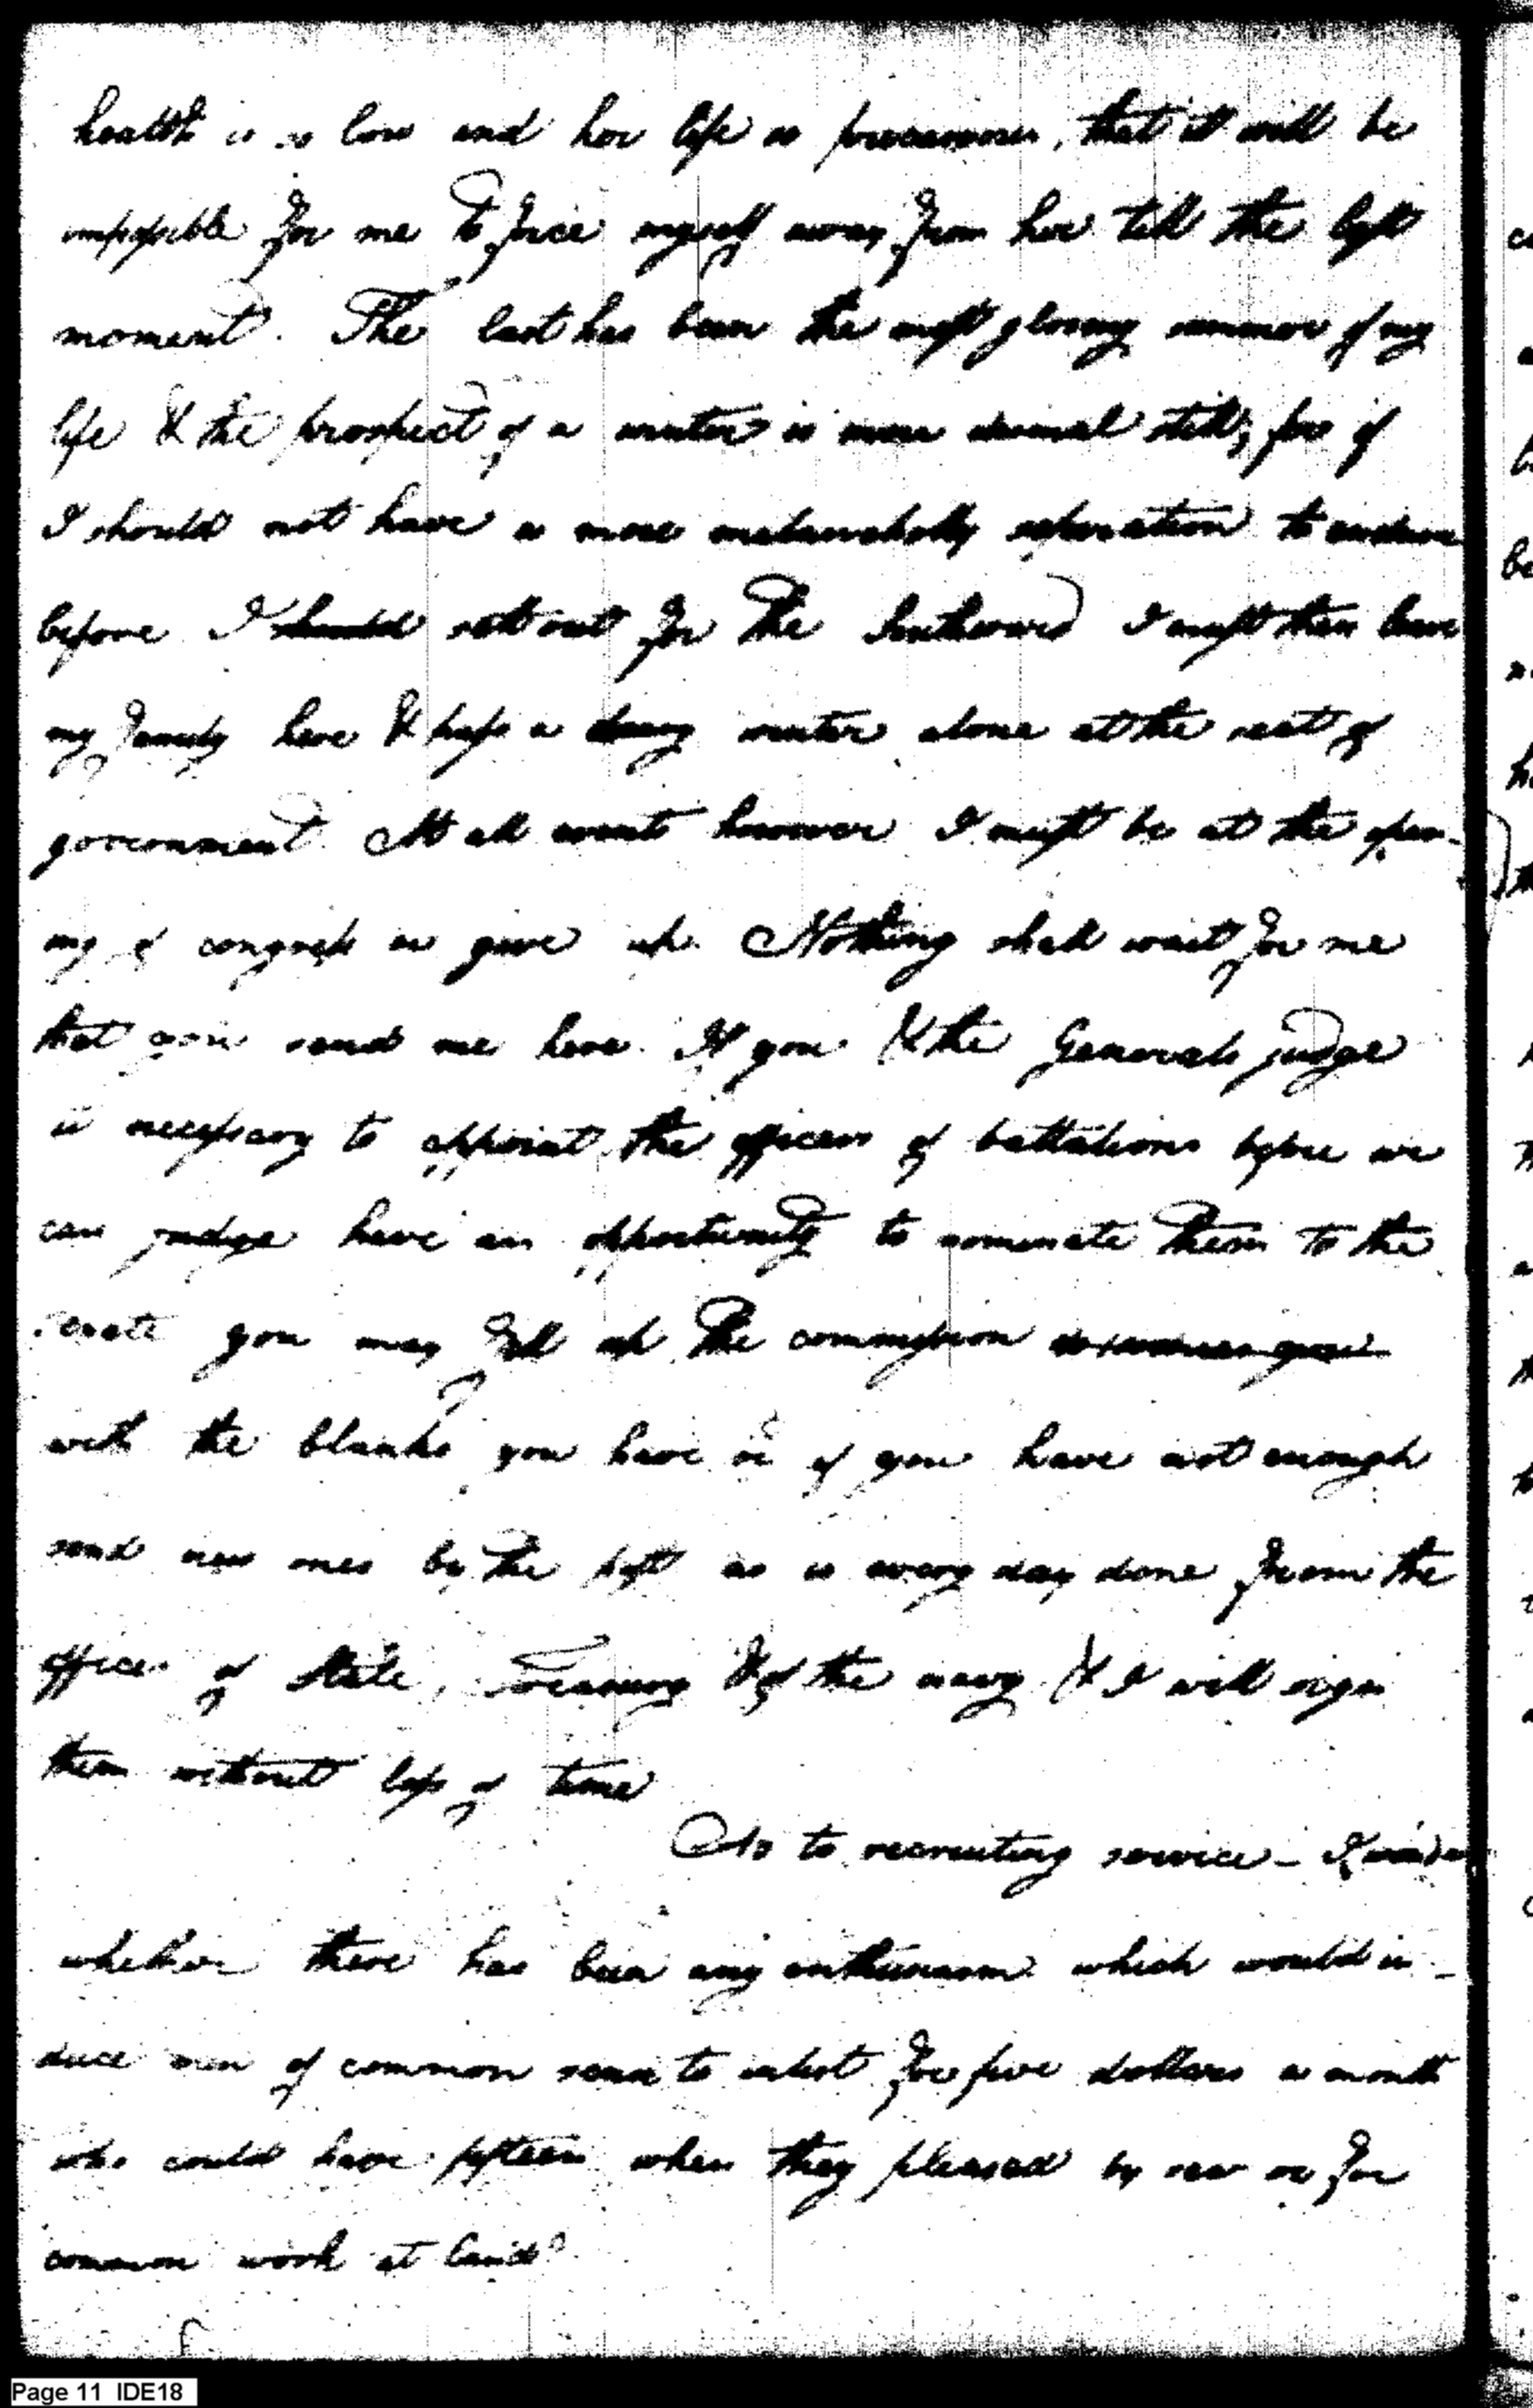 health is so low and her life so precarious, that it will be
impossible for me to force myself away from her till the last
moment. The last has been the most gloomy summer of my
life & the prospect of a winter is more dismal still, for if
I should not have a more melancholly seperation to endure
before I should sett out for the Southward I must then leave
my family here & pass a dreary winter alone at the seat of
government. At all events however I must be at the open-
ing of congress or give up. Nothing shall wait for me
that you send me here. If you & the Generals judge
it necessary to appoint the officers of battalions before we
can judge have an opportunity to nominate them to the
senate you may fill up the commission
with the blanks you have or if you have not enough
send new ones by the post as is every day done from the
offices of state, Treasury & of the navy & I will sign
them without loss of time
As to recruiting service - I wonder
whether there has been any enthusiasm which would in-
duce men of common sense to enlist for five dollars a month
who could have fifteen when they pleased by sea or for
common work at land?
Page 11 IDE18